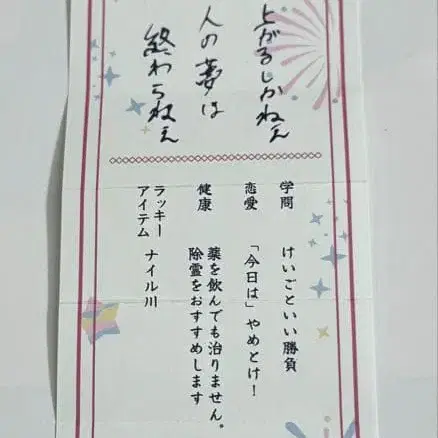 上がるしかねえ
人の夢は
終わらねえ
学問 けいごといい勝負
恋愛 「今日は」やめとけ！
健康 薬を飲んでも治りません。
除霊をおすすめします
ラッキー
アイテム ナイル川